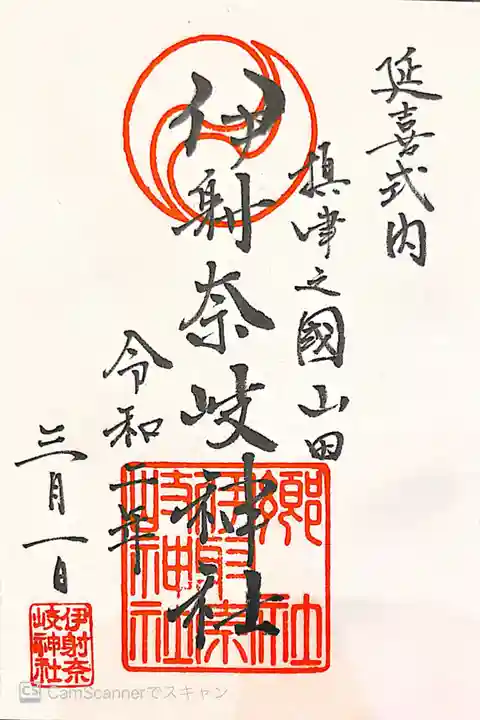 延喜式内
摂津之國山田
伊射奈岐神社
令和二年
三月一日
郷社
伊射奈
岐神社
伊射奈
岐神社
CS CamScannerでスキャン